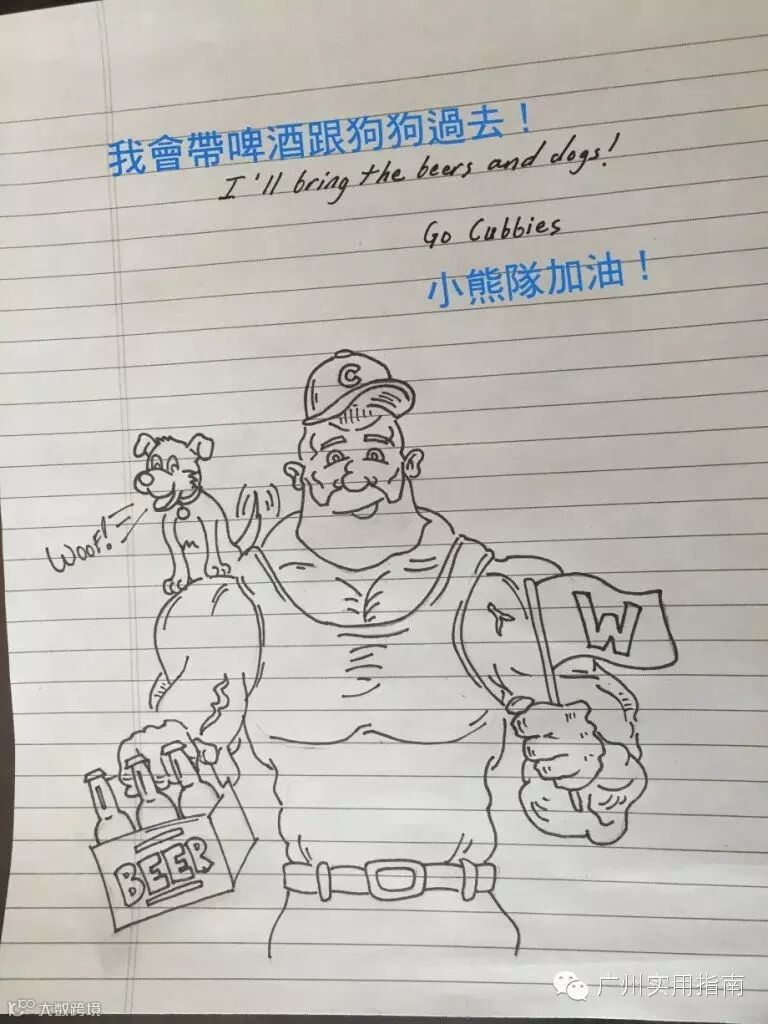 我會帶啤酒跟狗狗過去！
I'll bring the beers and dogs!
Go Cubbies
小熊隊加油！
C
WOOF!
W
BEER
广州实用指南
大数跨境